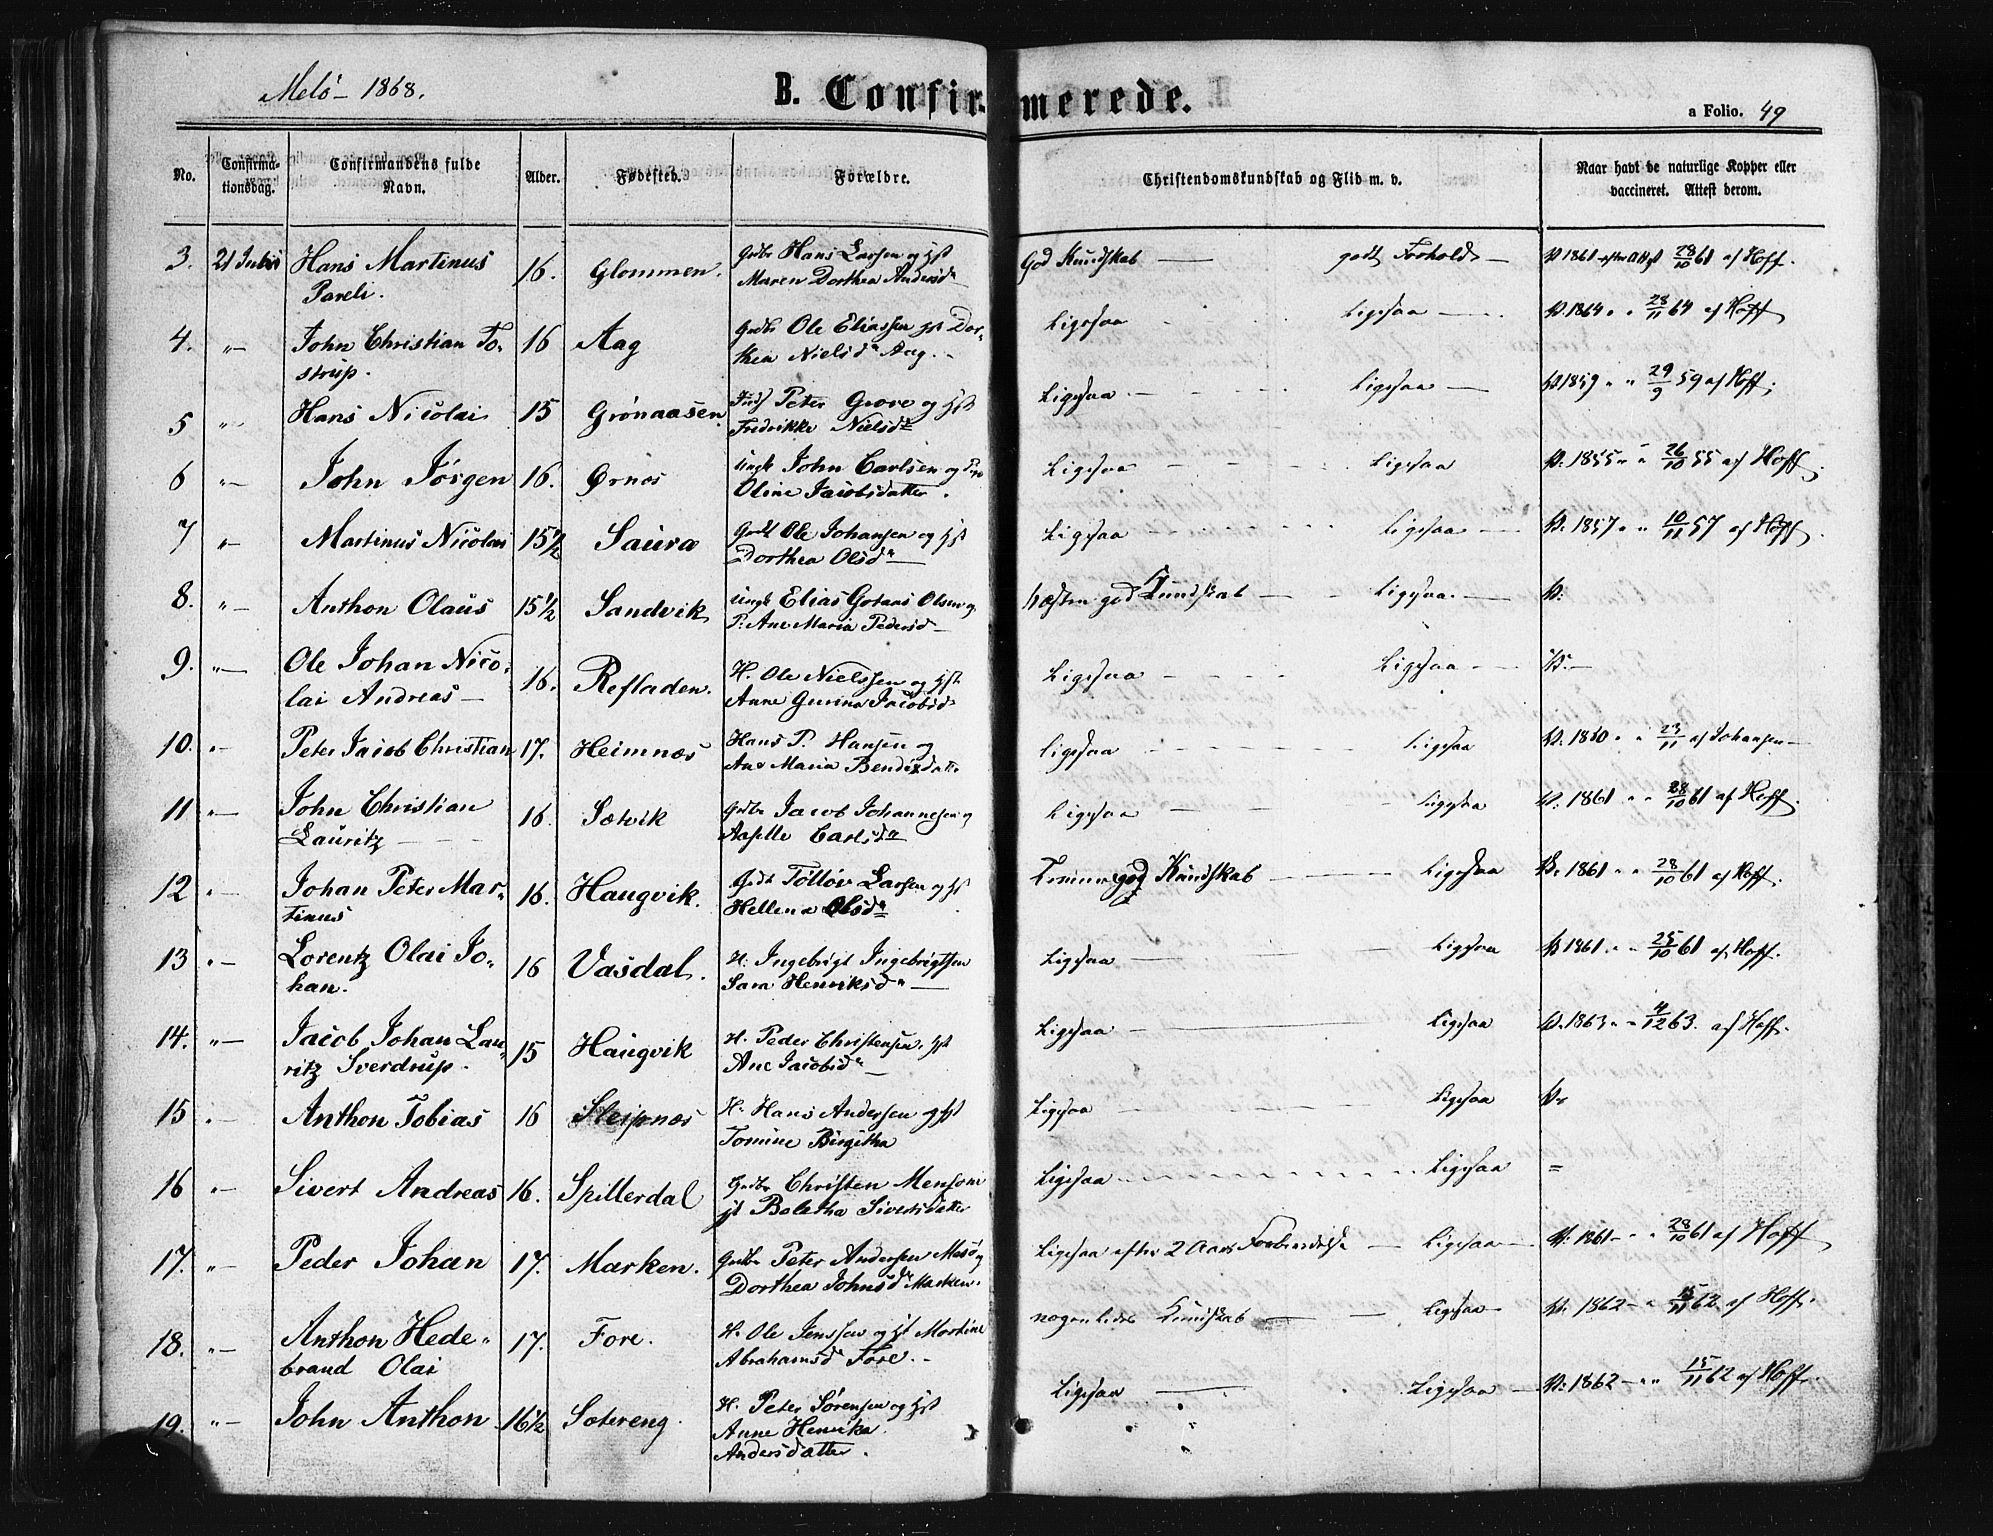 Melö 1868.
B. Confirmerede.
a Folio. 49
No. Confirmationsdag. Confirmandens fulde Navn. Alder. Fødested. Forældre. Christendomskundskab og Flid m. v. Naar havt de naturlige Kopper eller vaccineret. Attest derom.
3. 21 Juli Hans Martinus 16. Glommen. Gdbr Hans Larsen og Hst God Kundskab — godt Forhold — V. 1861 efter Attest 28/10 61 af Hoff.
Pareli. Maren Dorthea Andersd
4. " John Christian To- 16 Aag Gdbr Ole Eliassen Hst Dor- Ligesaa Ligesaa V. 1864 " " 28/11 64 af Hoff
strup. thea Nielsd Aag.
5 " Hans Nicolai 15 Grønaasen Peter Grove og Hst Ligesaa Ligesaa V. 1859 " " 29/9 59 af Hoff.
Fredrikke Nielsd
6 " John Jörgen 16. Ørnæs Ungk John Carlsen og Pige Ligesaa Ligesaa V. 1855 " " 26/10 55 af Hoff.
Oline Jacobsdatter.
7 " Martinus Nicolai 15 1/2 Saura Ole Johansen og Hst Ligesaa Ligesaa V. 1857 " " 10/11 57 af Hoff.
Dorthea Olsd
8. " Anthon Olaus 15 1/2 Sandvik Ungk Elias Olsen og Næsten god Kundskab Ligesaa V.
P. Ane Maria Pedersd
9. " Ole Johan Nico- 16. Refladen. H. Ole Nielssen og Hst Ligesaa Ligesaa V.
lai Andreas Anne Jacobsd
10. " Peter Jacob Christian 17. Heimnæs Hans P. Hansen og Ligesaa Ligesaa V. 23/11 af Johansen
Ane Maria Bendixdatt.
11 " John Christian 16. Sætvik Gdbr Jacob Johannesen og Ligesaa Ligesaa V. 1861 " " 28/10 61 af Hoff.
Lauritz Carlsd
12 " Johan Peter Mar- 16. Haugvik. Gdbr Tollöv Larsen og Hst god Kundskab Ligesaa V. 1861 " " 28/10 61 af Hoff.
tinus Hellena Olsd
13 " Lorentz Olai Jo- 16 Vasdal. H. Ingebrigt Ingebrigtsen Ligesaa Ligesaa V 1861 " " 25/10 61 af Hoff.
han. Sara Henriksd
14. " Jacob Johan Lau- 15 Haugvik H. Peder Christensen. Hst Ligesaa Ligesaa V. 1863 " " 4/12 63. af Hoff.
ritz Sverdrup. Ane Jacobsd
15 " Anthon Tobias 16 Sleipnæs H. Hans Andersen og Hst Ligesaa Ligesaa V.
Tomine Birgitha
16 " Sivert Andreas 16. Spillerdal Gdbr Christen Ligesaa Ligesaa "
Hst Boletha Sivertsdatter
17. " Peder Johan 17. Marken. Gdbr Peter Andersen Mesö og Ligesaa efter 2 Aars Forberedelse Ligesaa V. 1861 " " 28/10 61 af Hoff
Dorthea Johnsd Marken.
18. " Anthon Hede- 17. Fore. H. Ole Jenssen og Hst Martine nogenledes Kundskab Ligesaa V. 1862 " 15/11 62 af Hoff.
brand Olai Abrahamsd Fore.
19. " John Anthon 16 1/2 Sætereng. H. Peter Sörensen og Hst Ligesaa Ligesaa V. 1862 " " 15/11 62 af Hoff.
Anne Henrika
Andersdatter.